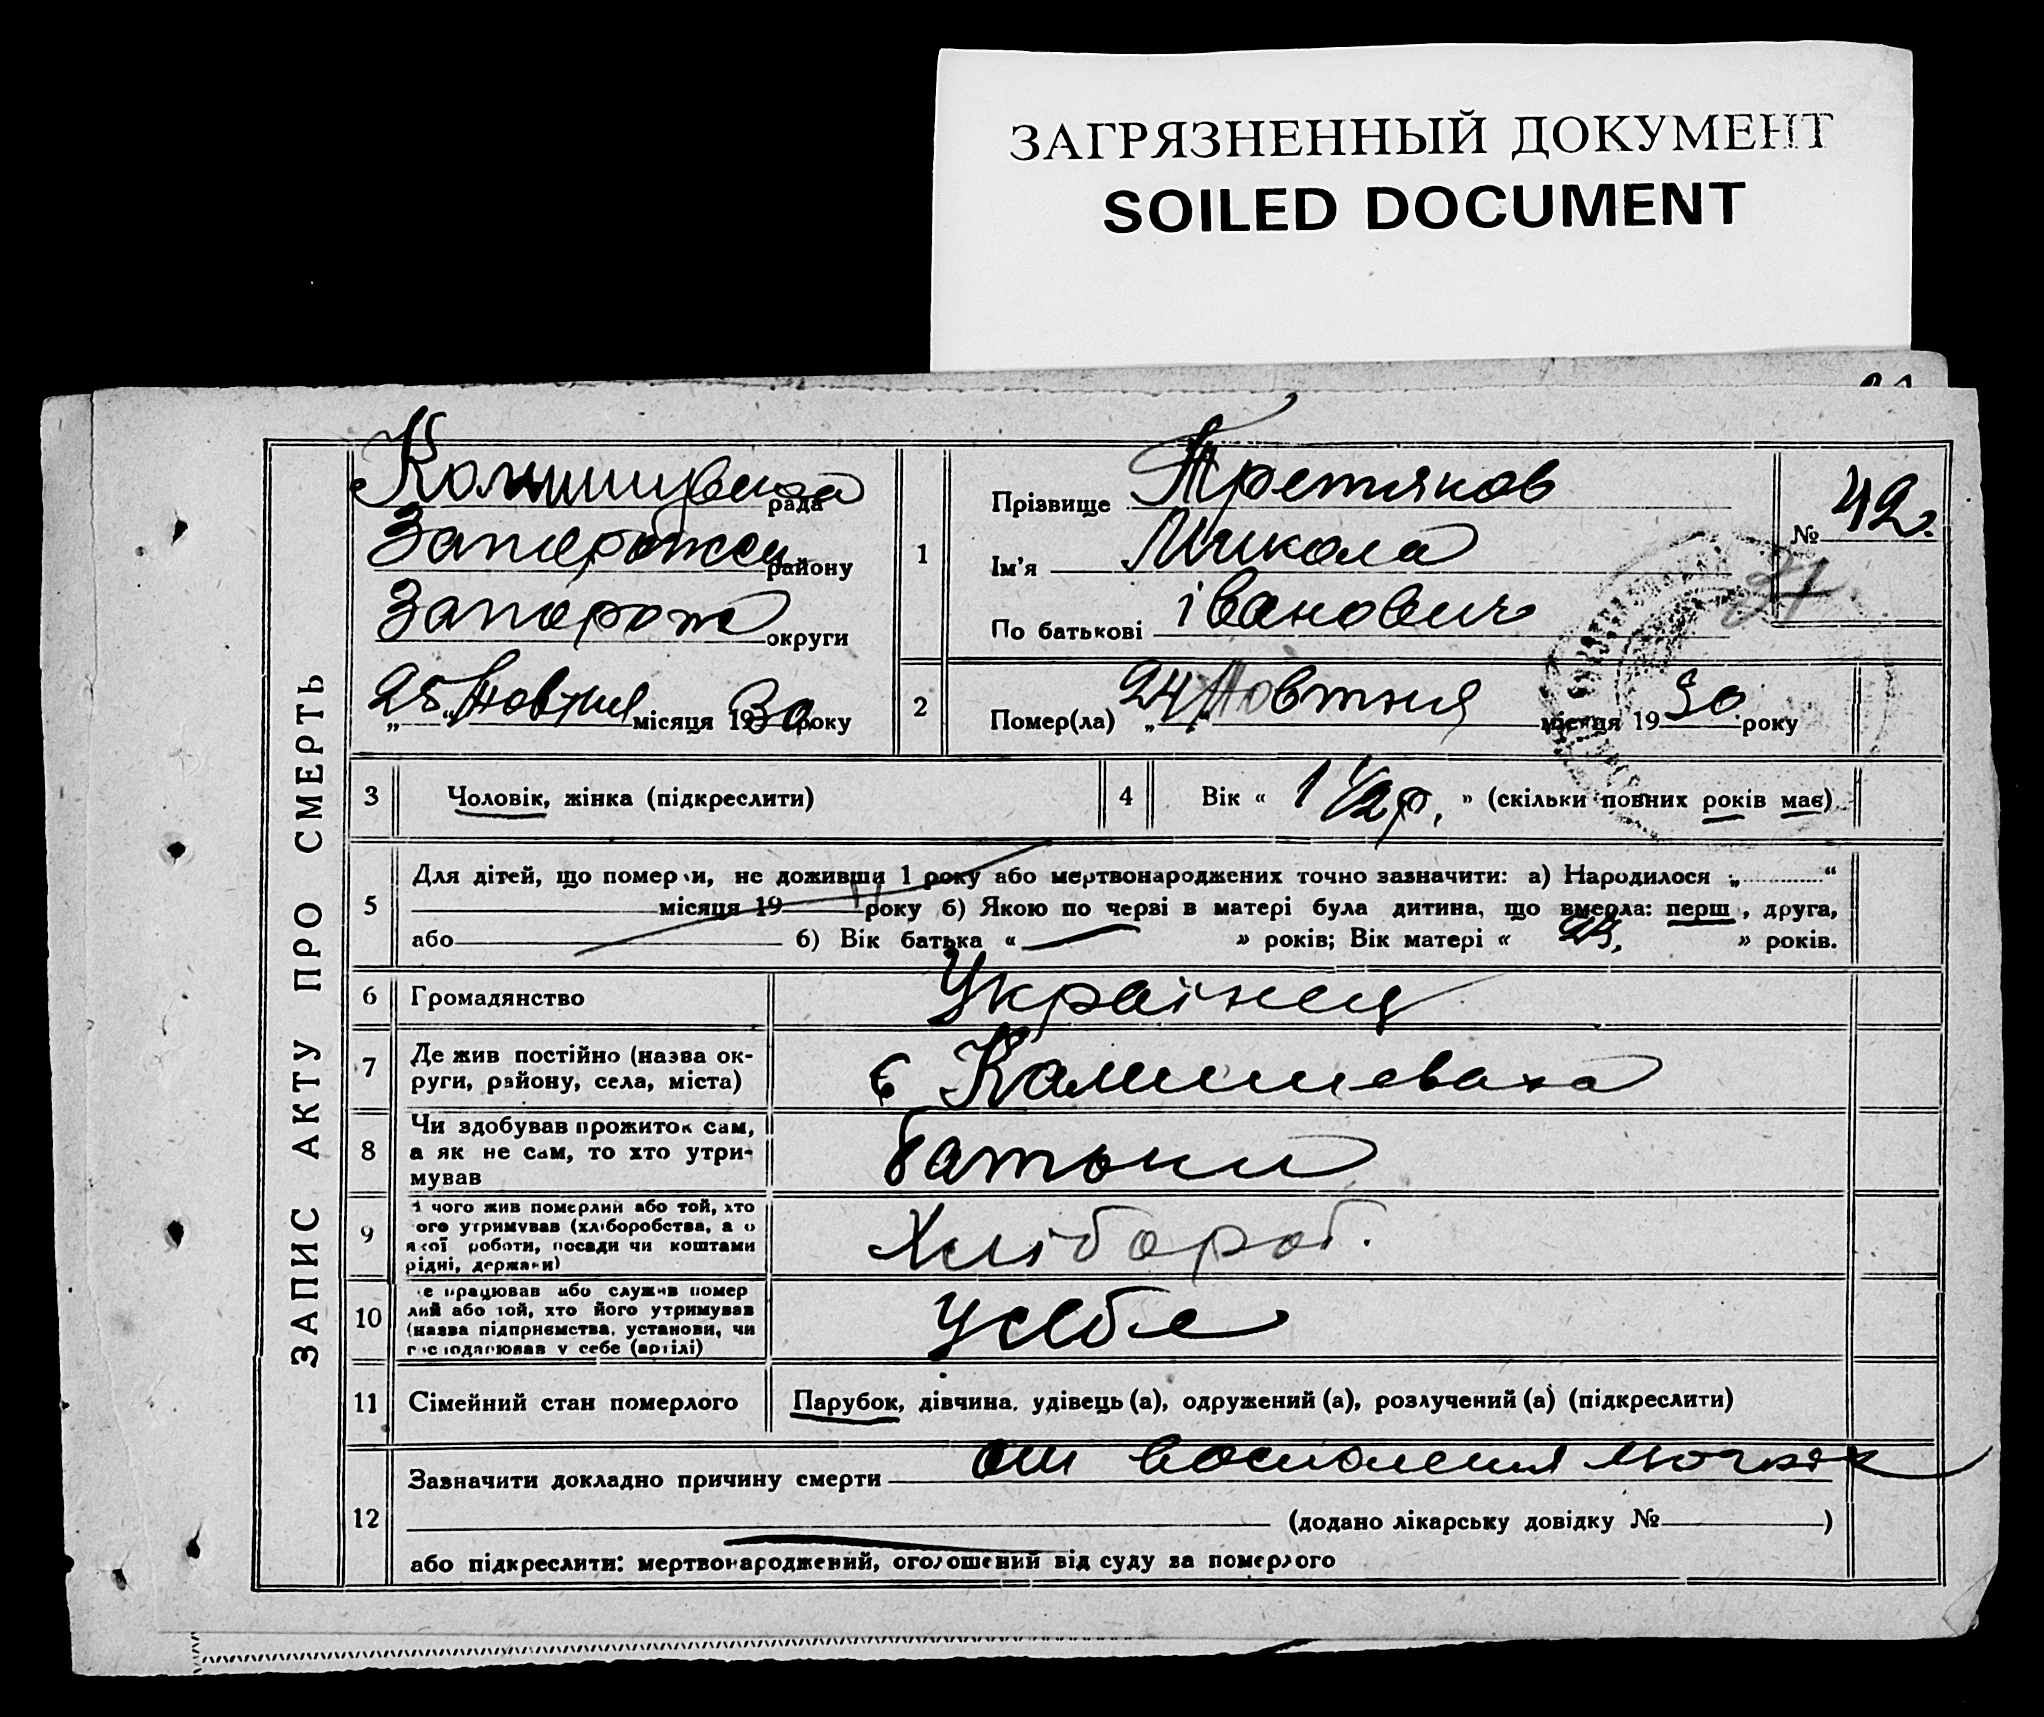 ЗАГРЯЗНЕННЫЙ ДОКУМЕНТ
SOILED DOCUMENT
ЗАПИС АКТУ ПРО СМЕРТЬ
рада
району
Запорож округи
„25“ Жовтня місяця 1930 року
1
Прізвище Третяков
Ім'я Микола
По батькові іванович
№ 42.
2
Помер(ла) „24“ Жовтня місяця 1930 року
3
Чоловік, жінка (підкреслити)
4
Вік « 1 1/2 р. » (скільки повних років має)
5
Для дітей, що померли, не доживши 1 року або мертвонароджених точно зазначити: а) Народилося „ “
місяця 19 року б) Якою по черзі в матері була дитина, що вмерла: перш , друга,
або б) Вік батька « » років; Вік матері « » років.
6
Громадянство
Українец
7
Де жив постійно (назва ок-
руги, району, села, міста)
с Камишеваха
8
Чи здобував прожиток сам,
а як не сам, то хто утри-
мував
батьки
9
чого жив померлий або той, хто
ого утримував (хліборобства, а о
якої роботи, посади чи коштами
рідні, держави)
Хлібороб.
10
е працював або служив помер
лий або той, хто його утримував
(назва підприємства, установи, чи
господарював у себе (артілі)
у себе
11
Сімейний стан померлого
Парубок, дівчина, удівець (а), одружений (а), розлучений (а) (підкреслити)
12
Зазначити докладно причину смерти от воспаления
(додано лікарську довідку № )
або підкреслити: мертвонароджений, оголошений від суду за померлого